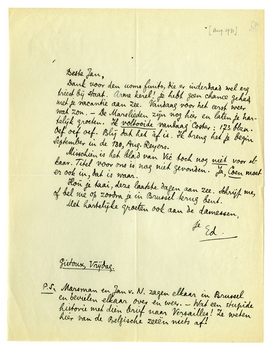 [aug. 1931]
Beste Jan,
Dank voor den
treed bij Staat. Arme kerel! Je hebt geen chance gehad
met je vacantie aan zee. Vandaag voor het eerst weer
wat zon. — De Marslieden zijn nog hier en laten je har-
telijk groeten. Ik voltooide vandaag Coster: 173 blzn.
Oef oef oef. Blij dat het af is. Ik breng het je begin
September in de 180, Aug. Reyers.
Misschien is het Blad van Vic toch nog niet voor el-
kaar. Titel voor ons is nog niet gevonden. Ja, Coen moet
er ook in, dat is waar.
Hou je taai, deze laatste dagen aan zee. Schrijf me,
of bel me op zoodra je in Brussel terug bent.
Met hartelijke groeten ook aan de damessen.
Je
Ed
Gistoux, Vrijdag.
P.S. Marsman en Jan v. N. zagen elkaar in Brussel
en bevielen elkaar over en weer. — Wat een stupide
historie met den brief naar Versailles! Ze weten
hier van de Belgische zeeën niets af!